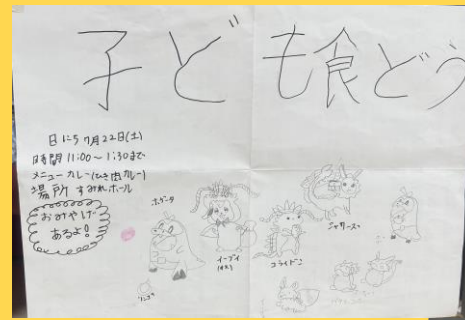 子ども食どう
日にち 7月22日(土)
時間 11:00～1:30まで
メニュー カレー(ひき肉カレー)
場所 すみれホール
おみやげ
あるよ!
ホゲータ
イーブイ
コライドン
リンゴ